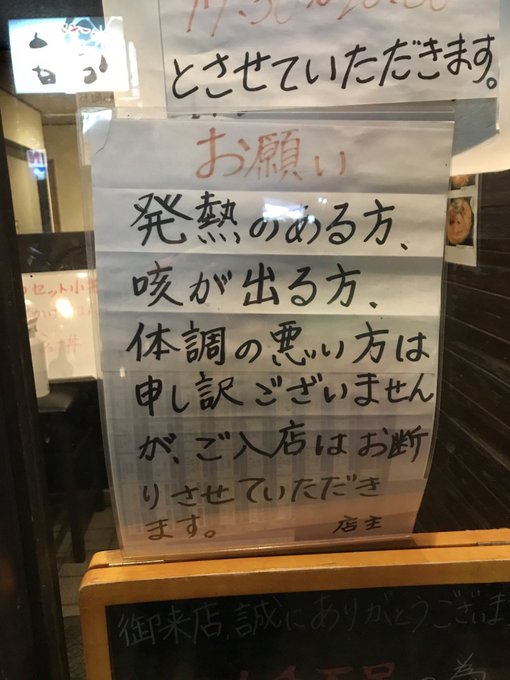 とさせていただきます。
お願い
発熱のある方、
咳が出る方、
体調の悪い方は
申し訳ございません
が、ご入店はお断
りさせていただき
ます。
店主
セット小
丼
御来店、誠にありがとうございま